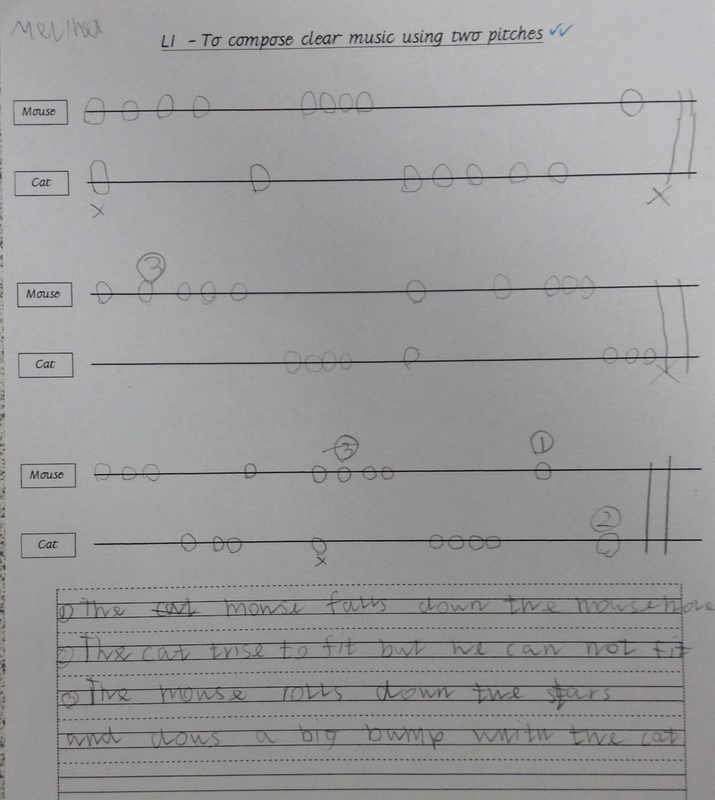 LI - To compose clear music using two pitches
Mouse
Cat
x
X
3
Mouse
Cat
X
3
1
Mouse
2
Cat
x
① The cat mouse falls down the mousehole
② The cat trise to fit but he can not fit
③ The mouse rolls down the stars
and dous a big bump whith the cat